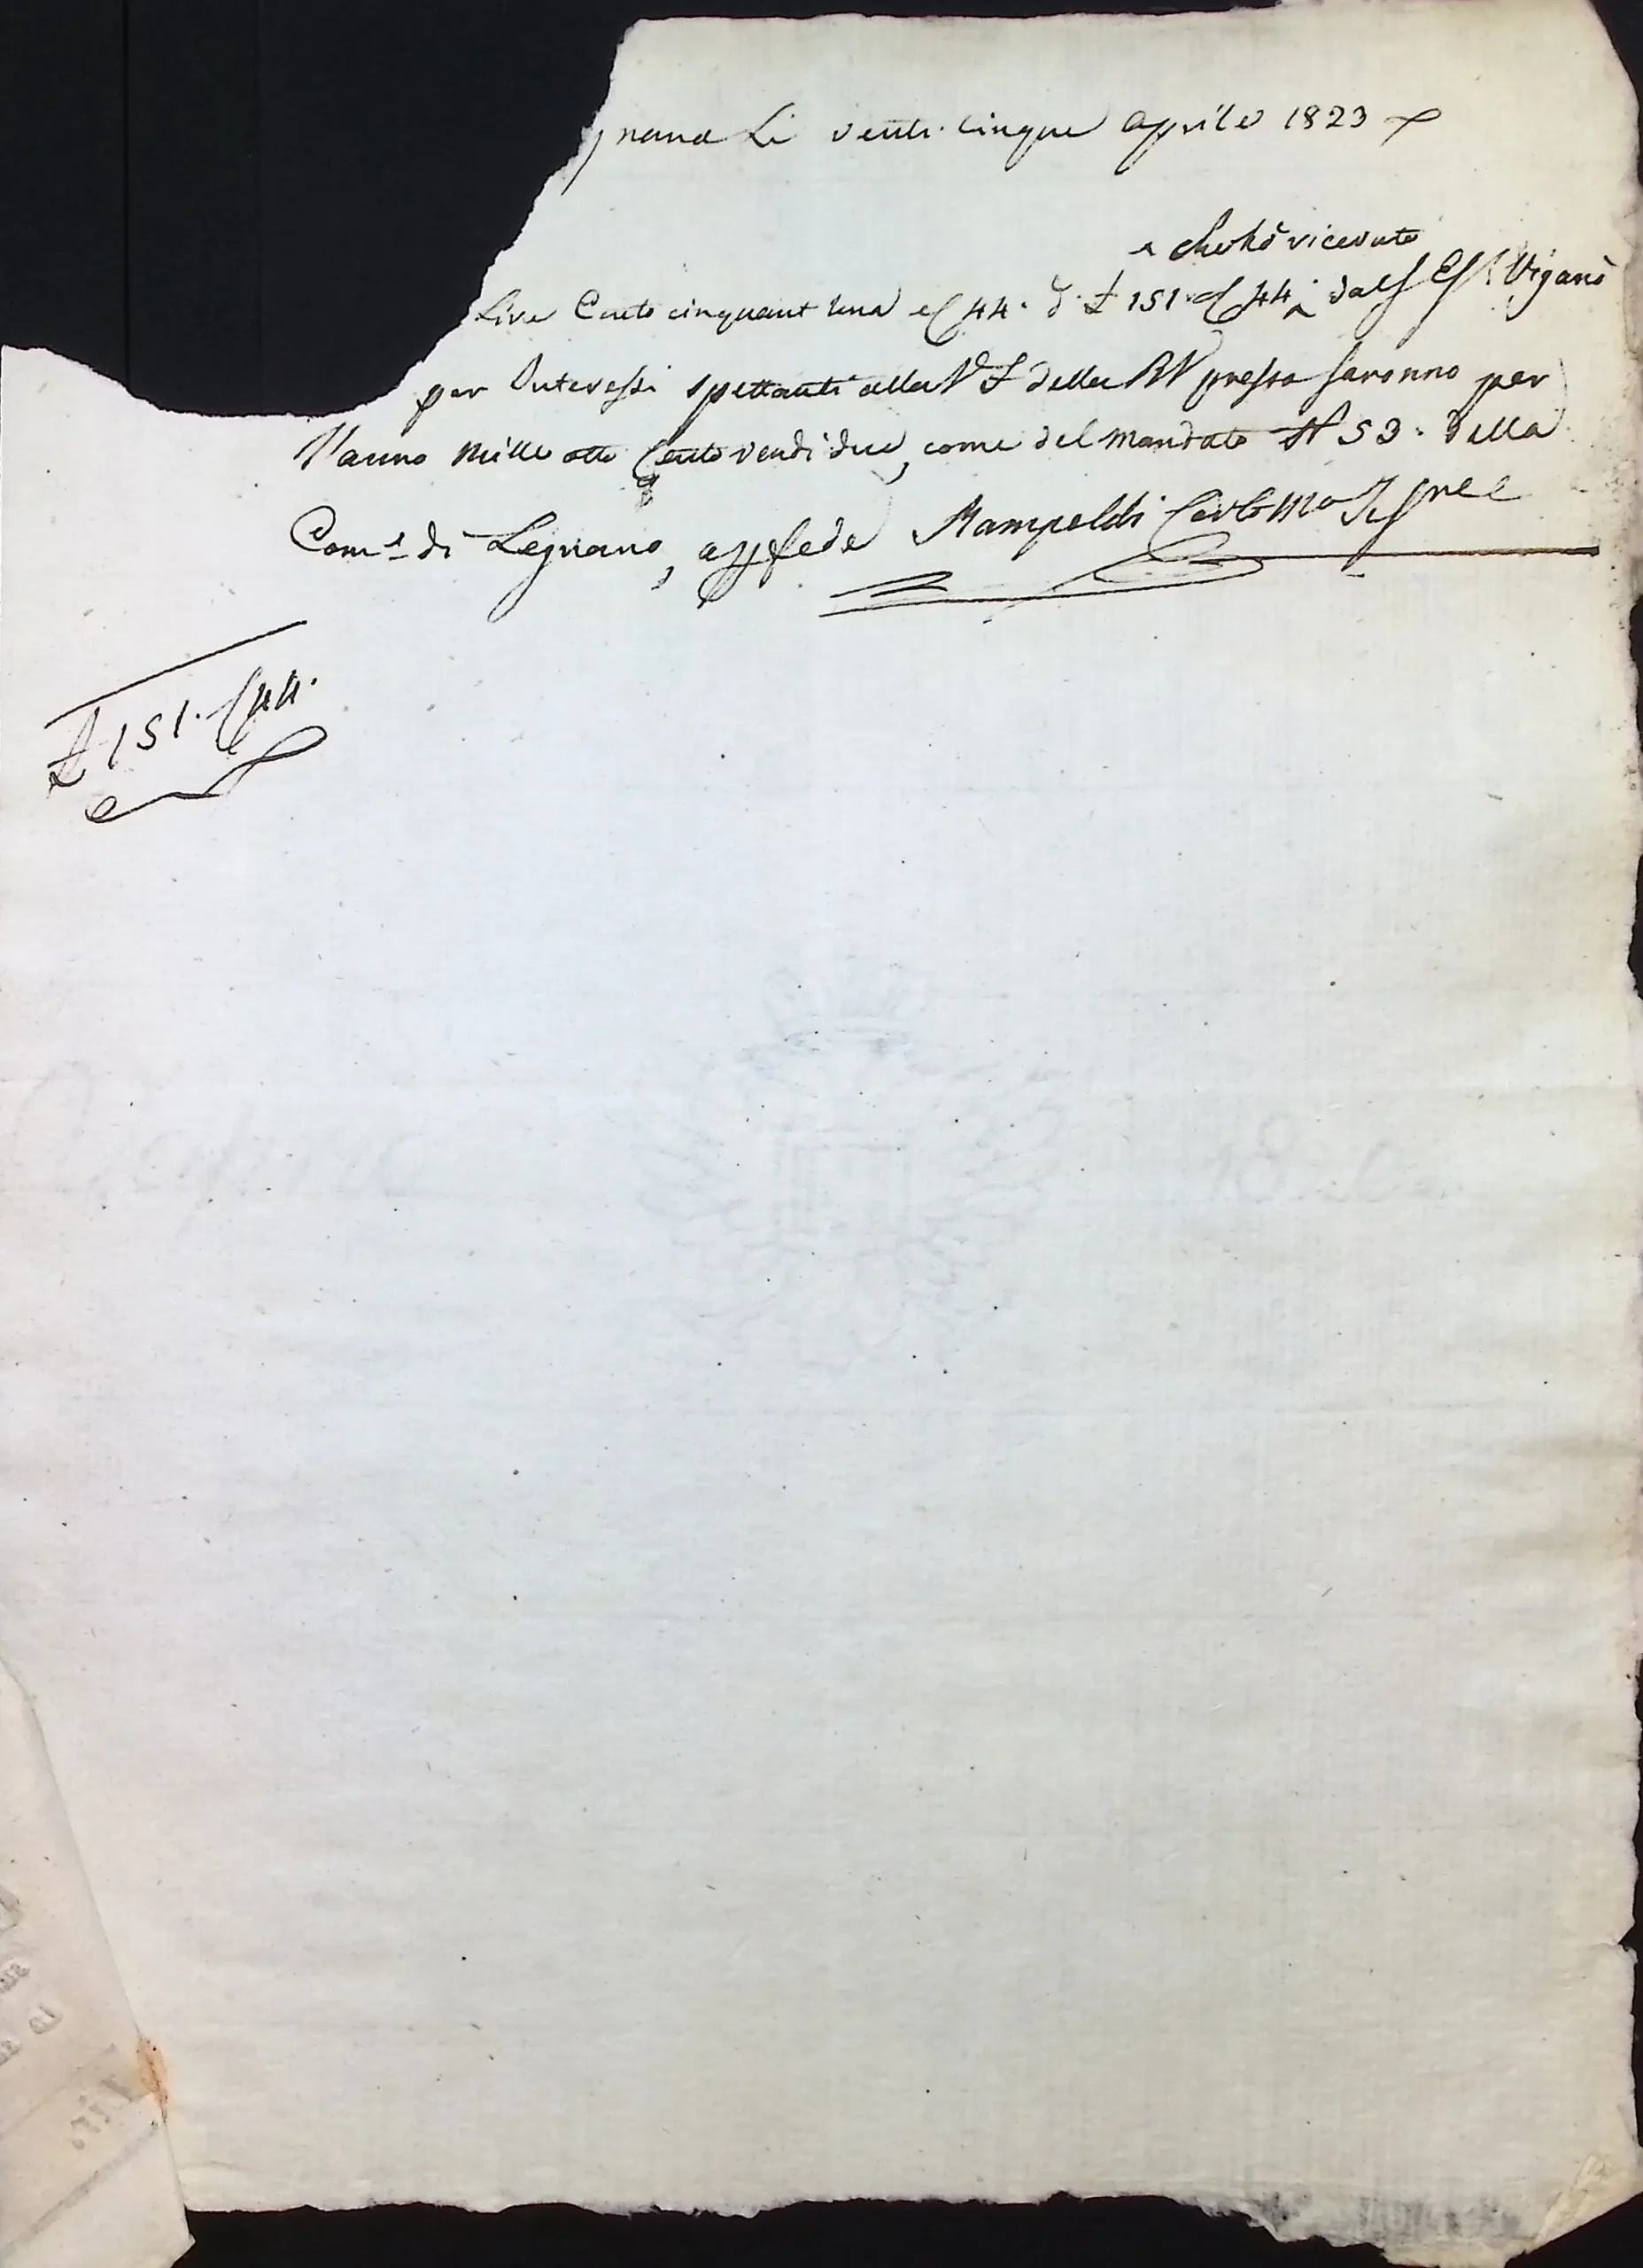 gnana Li venti cinque Aprile 1823
che ho ricevuto
Lire Cento cinquant una e C 44. d. £ 151. C 44. dal S. Es. Viganò
per Interessi spettanti alla V F della BV presso Saronno per
l'anno mille otto Cento vendi due, come del Mandato N 53. della
Com.e di Legnano, a fede Rampoldi Carlo
£ 151. C 44.